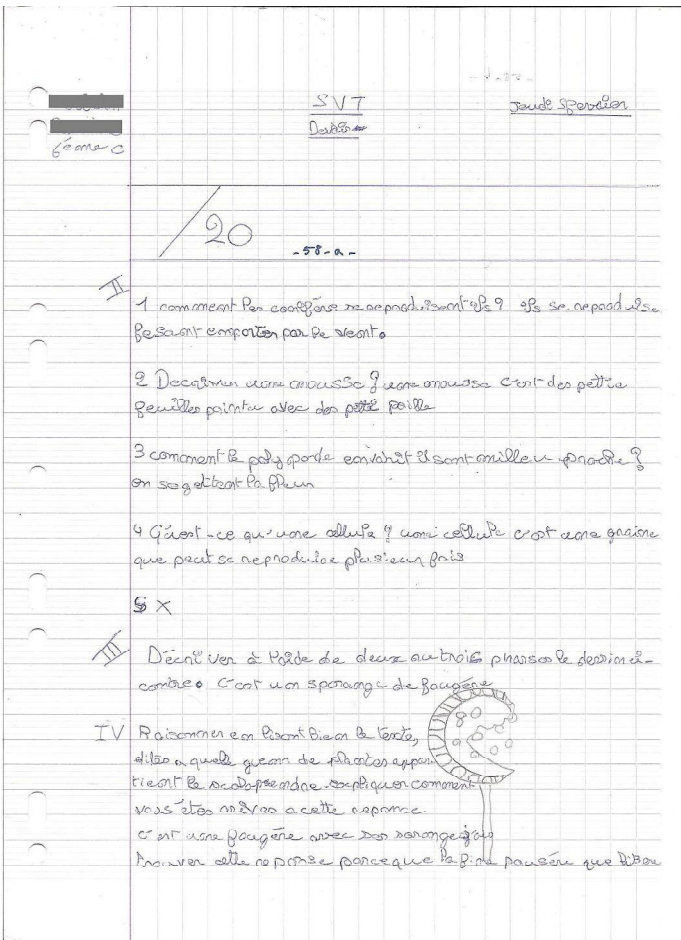 SVT
Jeudi 5 fevrier
Devoir
6eme C
/20
-58-a-
II
1 comment les conifère se reproduisent ils ? ils se reproduise
fesant emporter par le vent.
2 Decrimer une mousse ? une mousse c'est des petite
feuilles pointu avec des petit poille
3 comment le polypode envahit il sont millieu proche ?
en la fleur
4 Qu'est-ce qu'une cellule ? une cellule c'est une graine
que peut se reproduire plusieur fois
5 X
III Décri ver à l'aide de deux ou trois phrases le dessin ci-
contre. C'est un sporange de fougère
IV Raisonner en lisant bien le texte,
dites a quelle de plantes appar
tient le expliquer comment
vous êtes a cette reponse.
c'est une fougère avec son
cette reponse parceque la que